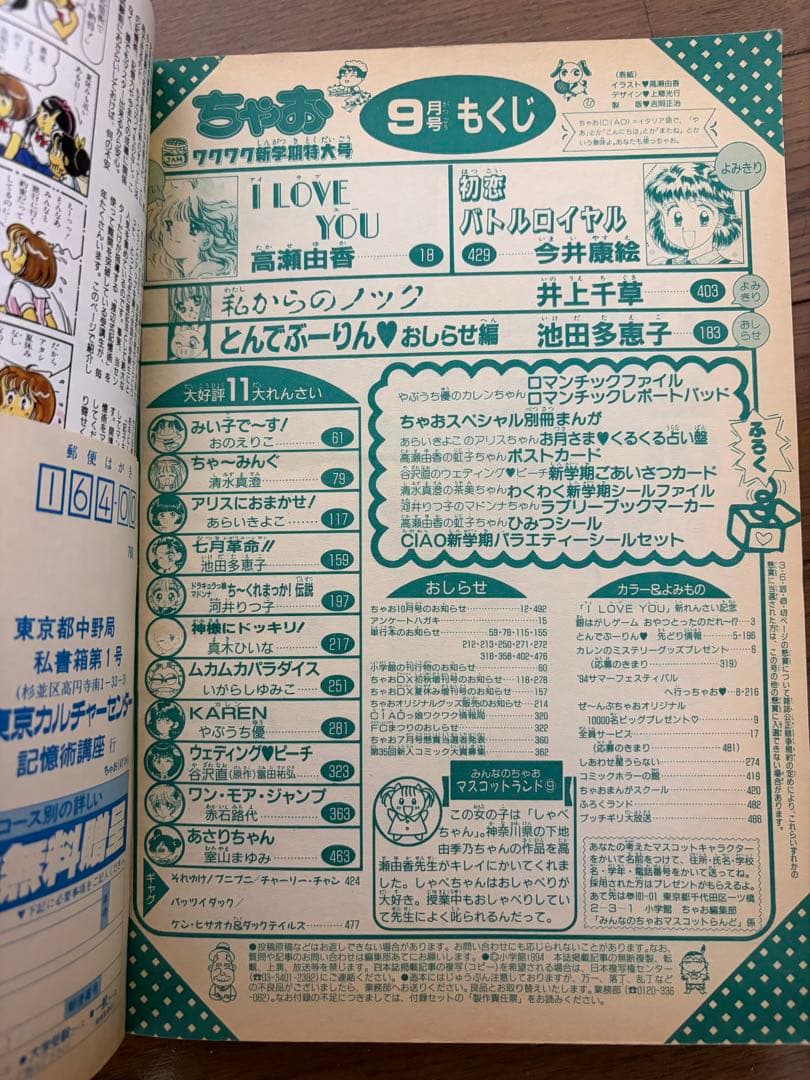 ちゃお
9月号 もくじ
ワクワク新学期特大号
(表紙)
イラスト♥高瀬由香
デザイン♥上願光行
製 版♥吉岡正治
ちゃお(CIAO)=イタリア語で、「や
あ」とか「こんにちは」とか「またね」とか
いう意味よ。あなたも使っちゃお。
I LOVE
YOU
高瀬由香 18
よみきり
初恋
バトルロイヤル
429 今井康絵
私からのノック 井上千草 403 よみきり
とんでぶーりん♥おしらせ編 池田多恵子 183 おしらせ
大好評11大れんさい
みい子で〜す!
おのえりこ 61
ちゃ〜みんぐ
清水真澄 79
アリスにおまかせ!
あらいきよこ 117
七月革命!!
池田多恵子 159
ドラキュラっ娘マドンナ ち〜くれまっか!伝説
河井りつ子 197
神様にドッキリ!
真木ひいな 217
ムカムカパラダイス
いがらしゆみこ 251
KAREN
やぶうち優 281
ウェディング♥ピーチ
谷沢直(原作)富田祐弘 323
ワン・モア・ジャンプ
赤石路代 363
あさりちゃん
室山まゆみ 463
ギャグ
それゆけ!プニプニ/チャーリー・チャン 424
バッツイダック/
ケン・ヒサオカ&ダックテイルズ 477
ふろく
やぶうち優のカレンちゃん ロマンチックファイル
ロマンチックレポートパッド
ちゃおスペシャル別冊まんが
あらいきよこのアリスちゃん お月さま♥くるくる占い盤
高瀬由香の虹子ちゃん ポストカード
谷沢直のウェディング♥ピーチ 新学期ごあいさつカード
清水真澄の茶美ちゃん わくわく新学期シールファイル
河井りつ子のマドンナちゃん ラブリーブックマーカー
高瀬由香の虹子ちゃん ひみつシール
CIAO新学期バラエティーシールセット
おしらせ
ちゃお10月号のお知らせ 12・492
アンケートハガキ 15
単行本のお知らせ 59・78・115・155
212・213・250・271・272
318・358・402・476
小学館の刊行物のお知らせ 60
ちゃおDX初秋増刊号のお知らせ 116・278
ちゃおDX夏休み増刊号のお知らせ 157
ちゃおオリジナルグッズ販売のお知らせ 214
CIAOっ娘ワクワク情報局 320
FCまつりのおしらせ 322
ちゃお7月号懸賞当選者発表 360
第35回新人コミック大賞募集 362
カラー&よみもの
「I LOVE YOU」新れんさい記念
銀はがしゲーム おやつとったのだれー!? 3
とんでぶーりん♥ 先どり情報 5・196
カレンのミステリーグッズプレゼント 6
(応募のきまり 319)
'94サマーフェスティバル
へ行っちゃお♥ 8・216
ぜーんぶちゃおオリジナル
10000名ビッグプレゼント♡ 9
全員サービス 17
(応募のきまり 481)
しあわせ星うらない 274
コミックホラーの館 419
ちゃおまんがスクール 420
ふろくランド 482
ブッチギリ大放送 486
みんなのちゃお
マスコットランド⑨
この女の子は「しゃべ
ちゃん」。神奈川県の下地
由季乃ちゃんの作品を高
瀬由香先生がキレイにかいてくれま
した。しゃべちゃんはおしゃべりが
大好き。授業中もおしゃべりしてい
て先生によく叱られるんだって。
あなたの考えたマスコットキャラクター
をかいて名前をつけて、住所・氏名・学校
名・学年・電話番号をかいて送ってね。
採用された方はプレゼントがもらえるよ。
あて先は〠101-01 東京都千代田区一ツ橋
2−3−1 小学館 ちゃお編集部
「みんなのちゃおマスコットらんど」係
●投稿原稿などはお返しできない場合があります。お問い合わせにも応じられないことがあります。なお、
質問や記事のお問い合わせは編集部あてにお願いします。●©小学館1994 本誌掲載記事の無断複製、転
載、上演、放送等を禁じます。®本誌掲載記事の複写(コピー)を希望される場合は、日本複写権センター
(☎03-3401-2382)にご連絡ください。●造本にはじゅうぶん注意しておりますが、万一、落丁、乱丁など
の不良品がございましたら、業務部へお送りください。良品とお取り替えいたします。業務部(☎0120-336
-082)。なお付録の不足につきましては、付録セットの「製作責任票」をお読みください。
郵便はがき
164
東京都中野局
私書箱第1号
(杉並区高円寺南1-33-3)
東京カルチャーセンター
記憶術講座 行
コース別の詳しい
無料贈呈